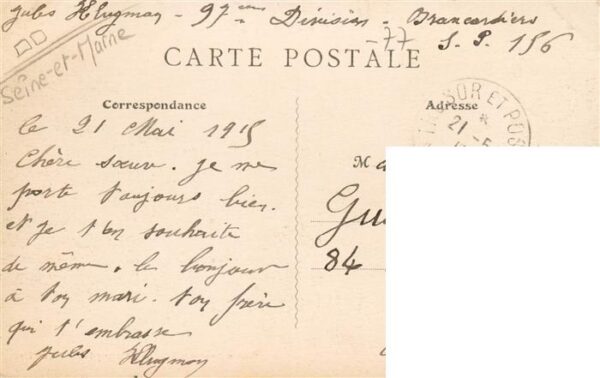 Jules 97ème Division - Brancardiers
-77
S. P. 156
Seine-et-Marne
CARTE POSTALE
Correspondance
Adresse
TRESOR ET POS
*
21-5
le 21 Mai 1915
Chère sœur. Je me
porte toujours bien.
et je t'en souhaite
de même. le bonjour
à ton mari. ton frère
qui t'embrasse
Jules
M
Gu
84